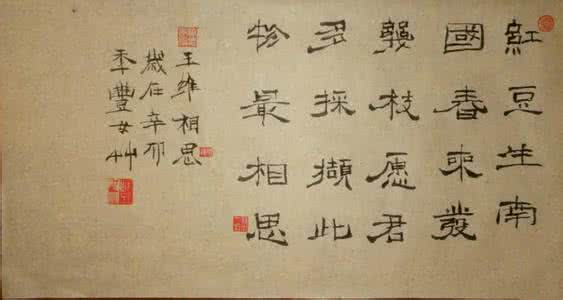 紅豆生南
國春來發
幾枝愿君
多採擷此
物最相思
王維相思
歲在辛卯
季豐女艸